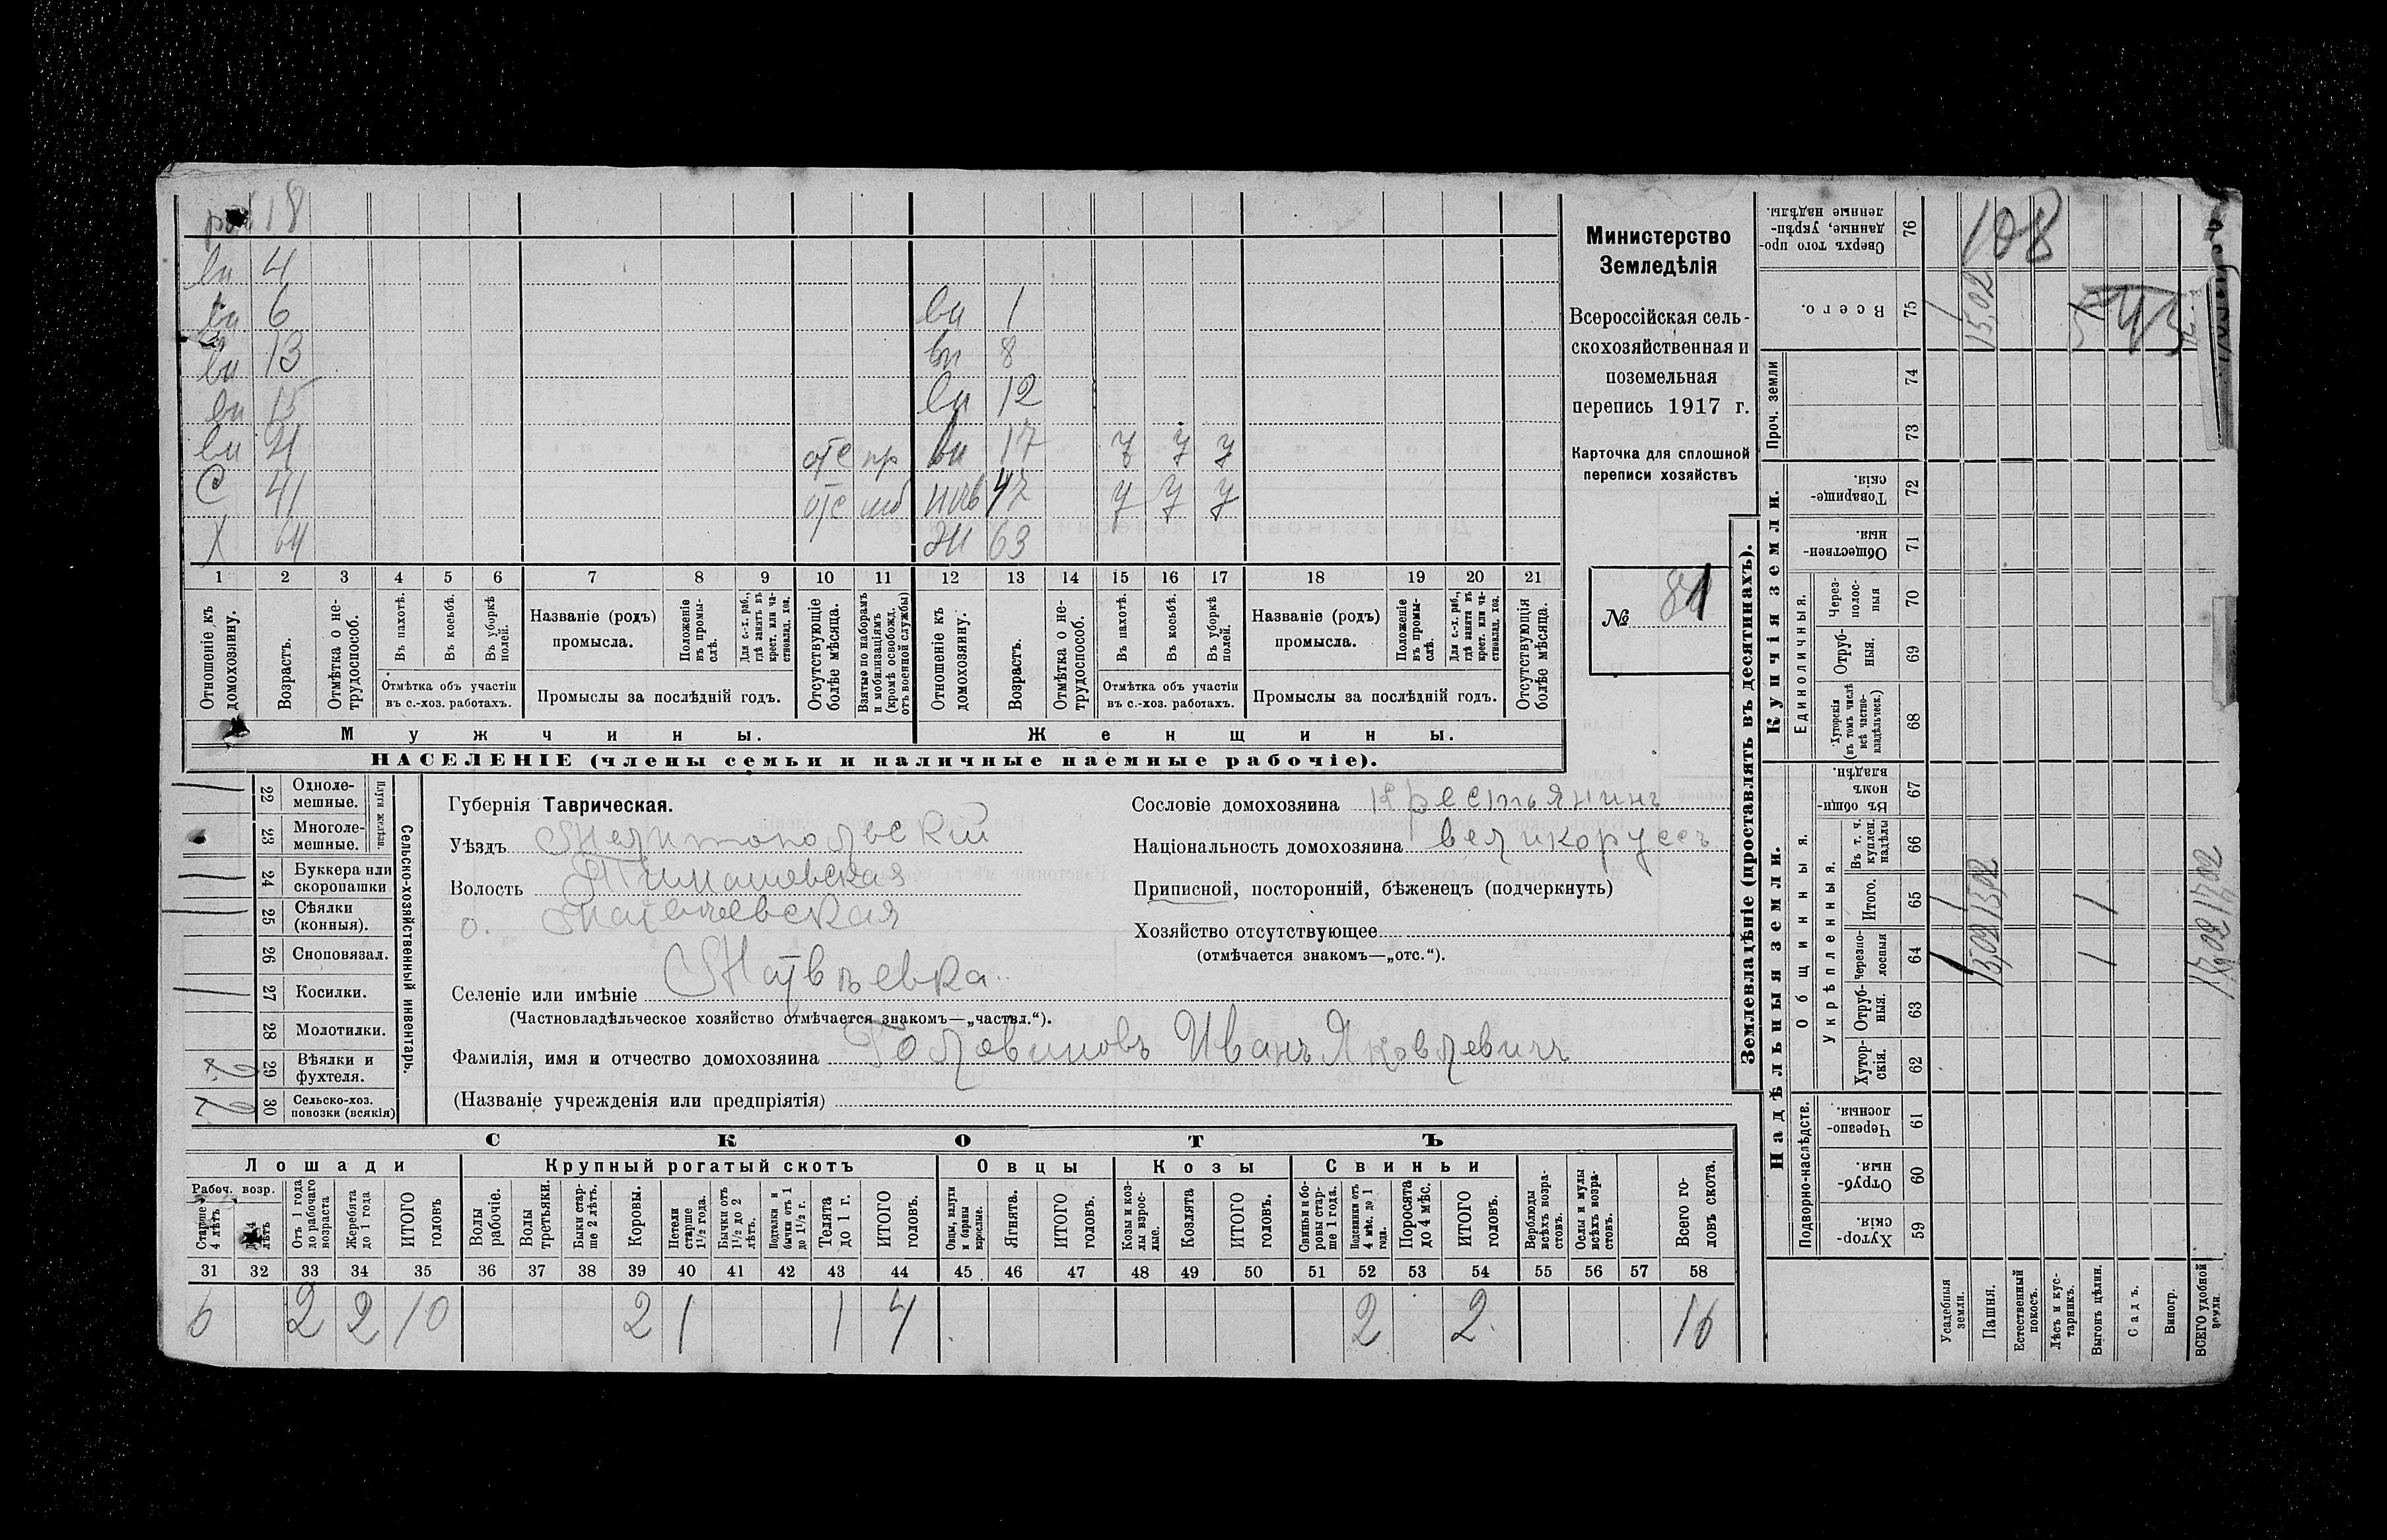 раб 18
вн 4
вн 6 вн 1
вн 13 вн 8
вн 15 вн 12
вн 21 отс пр вн 17 у у у
С 41 отс мб 47 у у у
Х 64 жн 63
1 2 3 4 5 6 7 8 9 10 11 12 13 14 15 16 17 18 19 20 21
Отношеніе къ домохозяину.
Возрастъ.
Отмѣтка о не-
трудоспособ.
Въ пахотѣ.
Въ косьбѣ.
Въ уборкѣ
полей.
Отмѣтка объ участіи
въ с.-хоз. работахъ.
Названіе (родъ)
промысла.
Положеніе
въ промы-
слѣ.
Для с.-х. раб.,
гдѣ занятъ въ
крест. или ча-
стновлад. хоз.
Промыслы за послѣдній годъ.
Отсутствующіе
болѣе мѣсяца.
Взятые по наборамъ
и мобилизаціямъ
(кромѣ освобожд.
отъ военной службы)
Отношеніе къ
домохозяину.
Возрастъ.
Отмѣтка о не-
трудоспособ.
Въ пахотѣ.
Въ косьбѣ.
Въ уборкѣ
полей.
Отмѣтка объ участіи
въ с.-хоз. работахъ.
Названіе (родъ)
промысла.
Положеніе
въ промы-
слѣ.
Для с.-х. раб.,
гдѣ занята въ
крест. или ча-
стновлад. хоз.
Промыслы за послѣдній годъ.
Отсутствующія
болѣе мѣсяца.
Мужчины. Женщины.
НАСЕЛЕНІЕ (члены семьи и наличные наемные рабочіе).
Министерство
Земледѣлія
Всероссійская сель-
скохозяйственная и
поземельная
перепись 1917 г.
Карточка для сплошной
переписи хозяйствъ
№ 81
22 Одноле-
мешные.
23 Многоле-
мешные.
Плуги желѣзн.
24 Буккера или
скоропашки
25 Сѣялки
(конныя).
26 Сноповязал.
27 Косилки.
28 Молотилки.
29 Вѣялки и
фухтеля.
30 Сельско-хоз.
повозки (всякія)
Сельско-хозяйственный инвентарь.
Губернія Таврическая.
Уѣздъ Мелитопольский
Волость Тимашевская
о. Матвеевская
Селеніе или имѣніе Матвѣевка
(Частновладѣльческое хозяйство отмѣчается знакомъ—„частвл.“).
Фамилія, имя и отчество домохозяина Головиновъ Иванъ Яковлевичъ
(Названіе учрежденія или предпріятія)
Сословіе домохозяина крестьянинъ
Національность домохозяина великоруссъ
Приписной, посторонній, бѣженецъ (подчеркнуть)
Хозяйство отсутствующее
(отмѣчается знакомъ—„отс.“).
СКОТЪ
Лошади Крупный рогатый скотъ Овцы Козы Свиньи
Рабоч. возр.
Старше
4 лѣтъ
лѣтъ
Отъ 1 года
до рабочаго
возраста
Жеребята
до 1 года
ИТОГО
головъ
Волы
рабочіе.
Волы
третьяки.
Быки стар-
ше 2 лѣтъ.
Коровы.
Нетели
старше
1½ года.
Бычки отъ
1½ до 2
лѣтъ.
Подтелки и
бычки отъ 1
до 1½ г.
Телята
до 1 г.
ИТОГО
головъ.
Овцы, валухи
и бараны
взрослые.
Ягнята.
ИТОГО
головъ.
Козы и коз-
лы взрос-
лые.
Козлята
ИТОГО
головъ.
Свиньи и бо-
ровы стар-
ше 1 года.
Подсвинки отъ
4 мѣс. до 1
года.
Поросята
до 4 мѣс.
ИТОГО
головъ.
Верблюды
всѣхъ возра-
стовъ.
Ослы и мулы
всѣхъ возра-
стовъ.
Всего го-
ловъ скота.
31 32 33 34 35 36 37 38 39 40 41 42 43 44 45 46 47 48 49 50 51 52 53 54 55 56 57 58
6 2 2 10 2 1 1 4 2 2 16
Землевладѣніе (проставлять въ десятинахъ).
Купчія земли.
Надѣльныя земли.
Проч. земли
Единоличныя.
Общинныя.
Укрѣпленныя.
Подворно-наслѣдств.
Сверхъ того про-
данные, укрѣп-
ленные надѣлы. 76
Всего. 75
74
73
Товарище-
скія. 72
Обществен-
ныя. 71
Через-
полос-
ныя 70
Отруб-
ныя. 69
Хуторскія
(въ томъ числѣ
всѣ частно-
владѣльческ.) 68
Въ общи-
номъ
владѣн. 67
Въ т. ч.
куплен.
надѣлы 66
Итого. 65
Черезпо-
лосныя 64
Отруб-
ныя. 63
Хутор-
скія. 62
Черезпо-
лосныя. 61
Отруб-
ныя. 60
Хутор-
скія. 59
Усадебныя
земли.
Пашня.
Естественный
покосъ.
Лѣсъ и кус-
тарникъ.
Выгонъ цѣлин.
Садъ.
Виногр.
ВСЕГО удобной
земли.
108
15,02
1 1
15,02 15,02
1 1
17,02 17,02